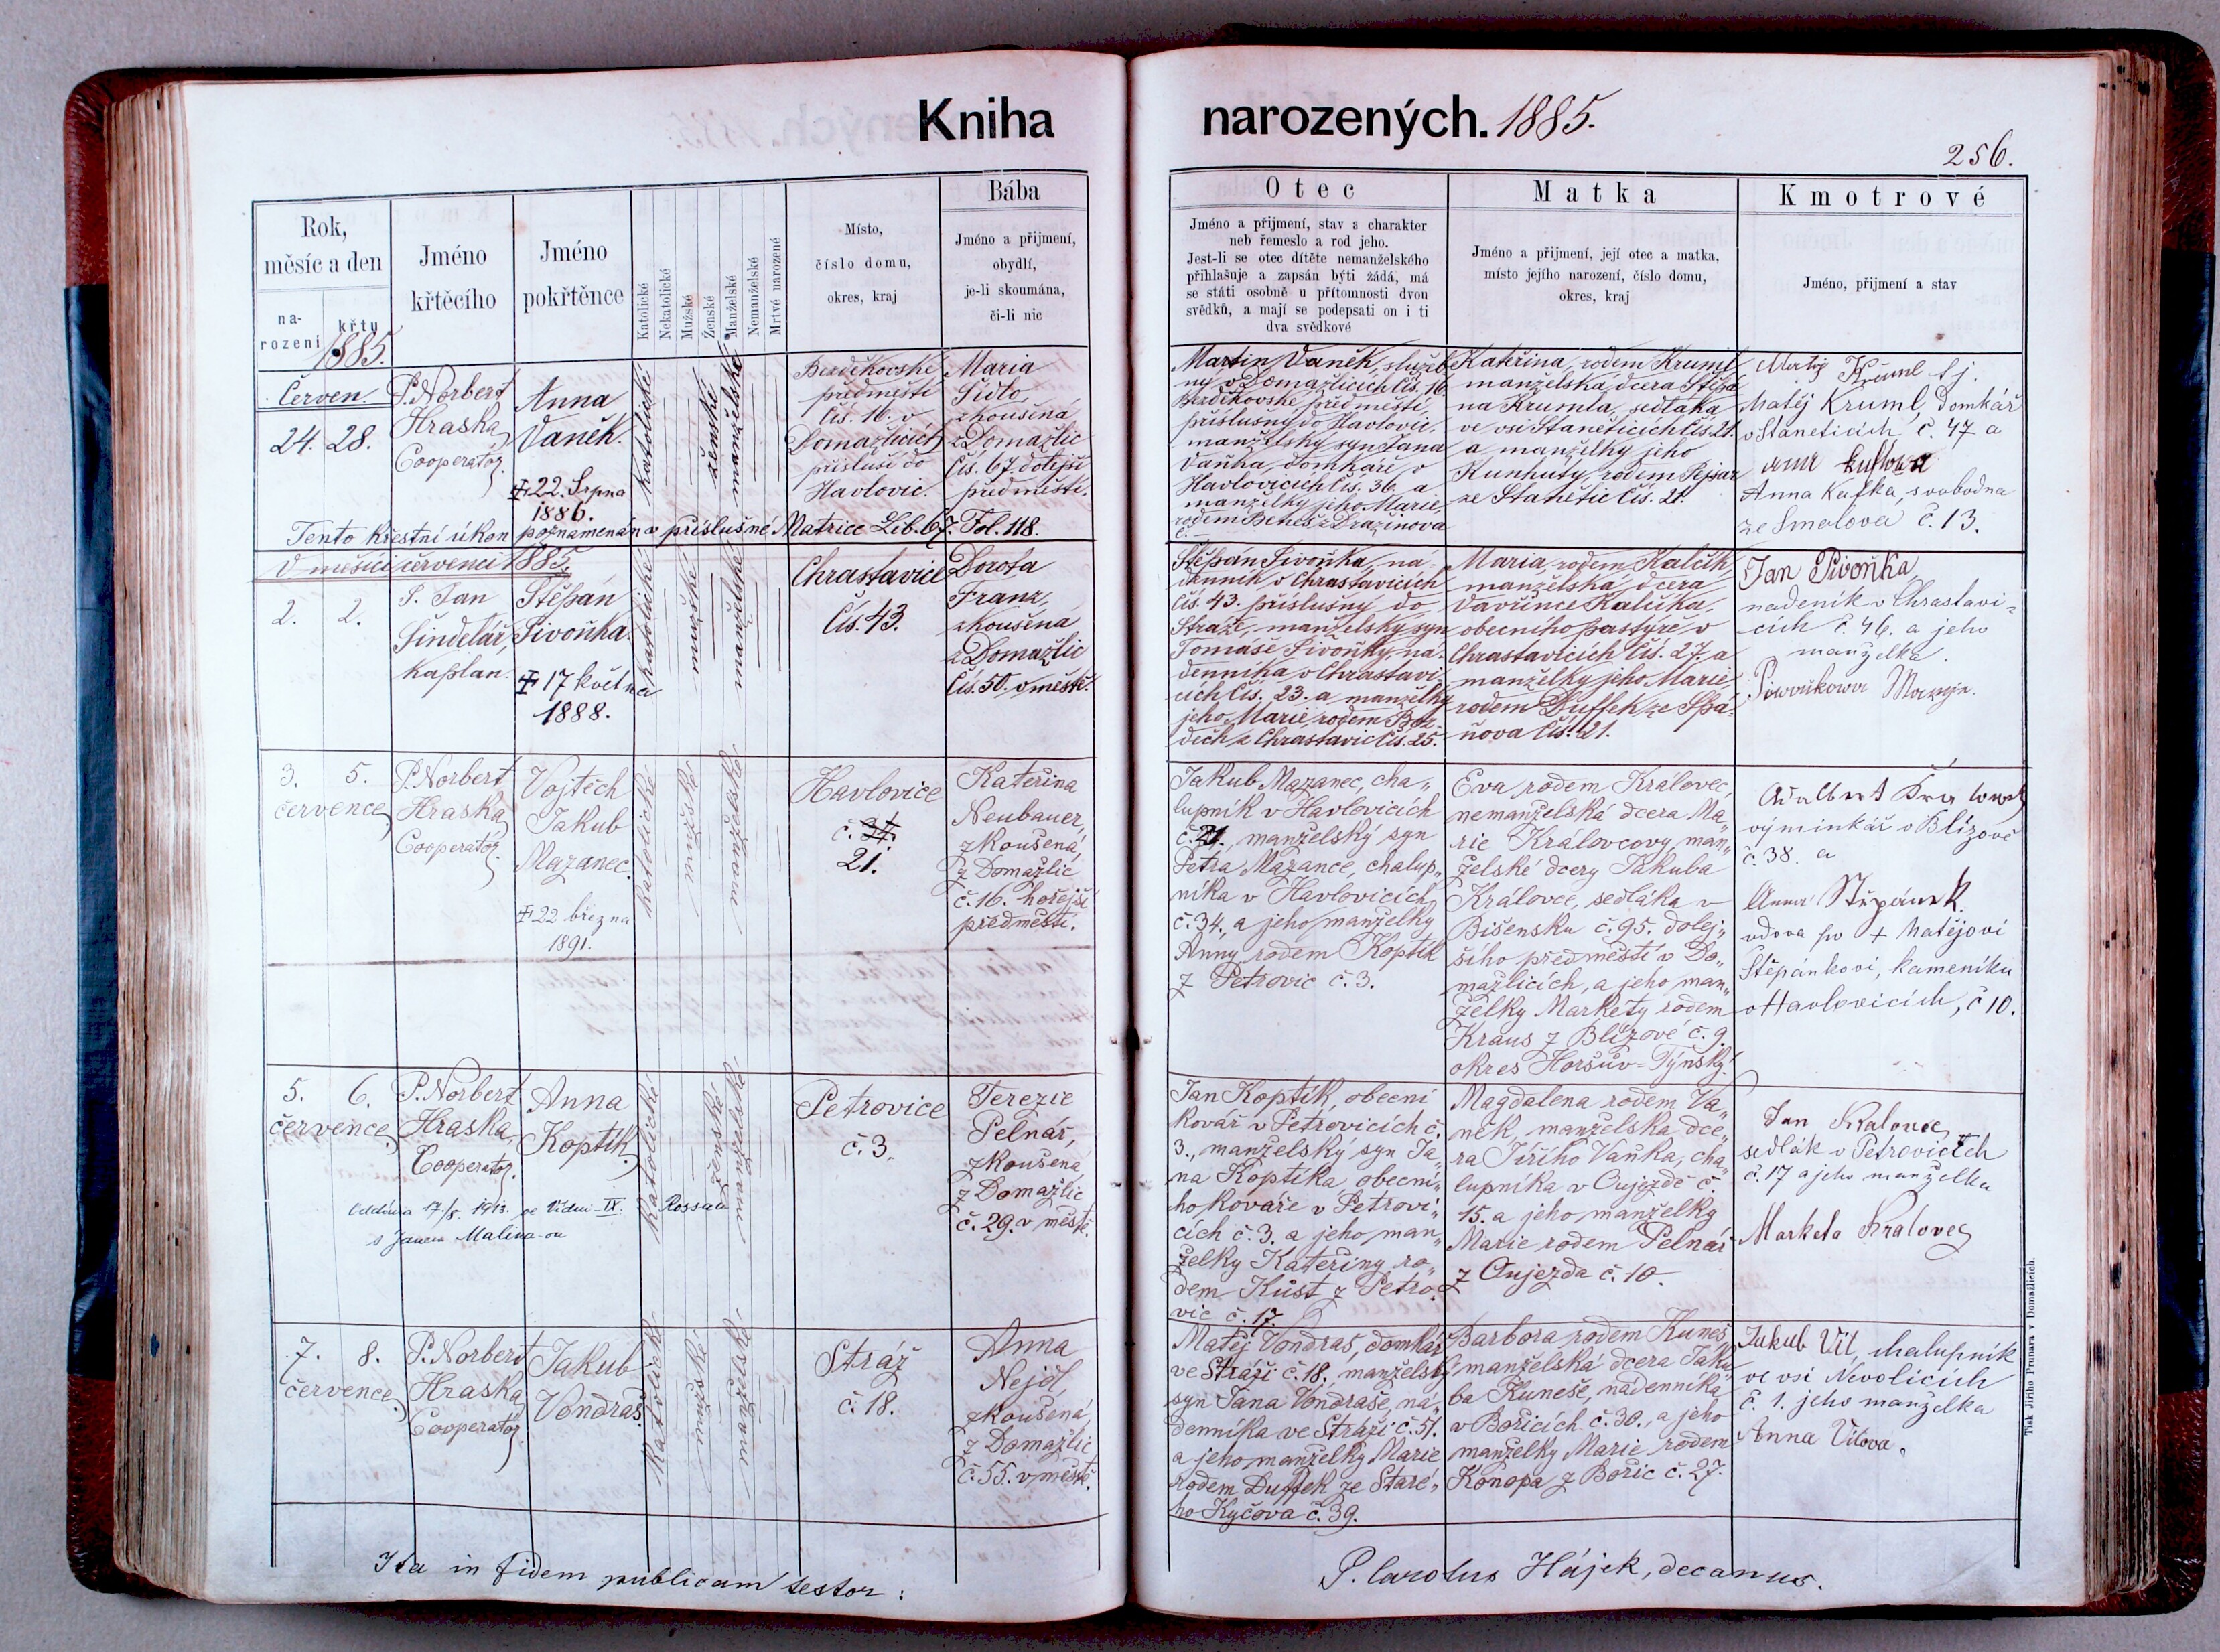 Kniha
narozených. 1885.
256.
Rok,
měsíc a den
na-
rození
křtu
1885.
Jméno
křtěcího
Jméno
pokřtěnce
Katolické
Nekatolické
Mužské
Ženské
Manželské
Nemanželské
Mrtvě narozené
Místo,
číslo domu,
okres, kraj
Bába
Jméno a přijmení,
obydlí,
je-li skoumána,
či-li nic
Otec
Jméno a přijmení, stav a charakter
neb řemeslo a rod jeho.
Jest-li se otec dítěte nemanželského
přihlašuje a zapsán býti žádá, má
se státi osobně u přítomnosti dvou
svědků, a mají se podepsati on i ti
dva svědkové
Matka
Jméno a přijmení, její otec a matka,
místo jejího narození, číslo domu,
okres, kraj
Kmotrové
Jméno, přijmení a stav
Červen.
24. 28.
P. Norbert
Hraska,
Cooperator.
Anna
Vaněk.
22. Srpna
1886.
katolické
ženské
manželské
Bezděkovské
předměstí
Čís. 16. v
Domažlicích
přísluší do
Havlovic.
Maria
Sidlo,
zkoušená
z Domažlic
Čís. 67. dolejší
předměstí.
Martin Vaněk, služeb
ný v Domažlicích Čís. 16.
Bezděkovské předměstí,
příslušný do Havlovic.
manželský syn Jana
Vaňka, domkáře v
Havlovicích Čís. 36. a
manželky jeho Marie,
rodem Beneš z Dražinova
Kateřina, rodem Kruml
manželská dcera Štěpá
na Krumla, sedláka
ve vsi Stanětících Čís. 21.
a manželky jeho
Kunhuty, rodem Pejsar
ze Stanětic Čís. 21.
Matěj Kruml, domkář
v Stanetících č. 47 a
Anna Kafka, svobodna
ze Smolova č. 13.
Tento křestní úkon poznamenán v příslušné Matrice Lib. 67. Fol. 118.
V měsíci červenci 1885.
2. 2.
P. Jan
Šindelář,
Kaplan.
Štěpán
Pivoňka.
17 května
1888.
katolické
mužské
manželské
Chrastavice
Čís. 43.
Dorota
Franz,
zkoušená
z Domažlic
Čís. 50. v městě.
Štěpán Pivoňka, ná-
denník v Chrastavicích
Čís. 43. příslušný do
Stráže, manželský syn
Tomáše Pivoňky, ná-
denníka v Chrastavi-
cích Čís. 23. a manželky
jeho Marie, rodem Boz-
děch z Chrastavic Čís. 25.
Maria, rodem Kalčík
manželská dcera
Vavřince Kalčíka,
obecního pastýře v
Chrastavicích Čís. 27. a
manželky jeho Marie
rodem Duffek ze Spá-
ňova Čís. 21.
Jan Pivoňka
nadeník v Chrastavi-
cích č. 46. a jeho
manželka.
3. 5.
července
P. Norbert
Hraska,
Cooperator.
Vojtěch
Jakub
Mazanec.
22 března
1891.
katolické
mužské
manželské
Havlovice
č. 34.
21.
Kateřina
Neubauer,
zkoušená,
z Domažlic
č. 16. hořejší
předměstí.
Jakub Mazanec, cha„
lupník v Havlovicích
č. 21., manželský syn
Petra Mazance, chalup„
níka v Havlovicích
č. 34., a jeho manželky
Anny rodem Koptík
z Petrovic č. 3.
Eva rodem Královec,
nemanželská dcera Ma„
rie Královcovy, man„
želské dcery Jakuba
Královce, sedláka v
Bišensku č. 95. dolej„
šího předměstí v Do„
mažlicích, a jeho man„
želky Markéty rodem
Kraus z Blížové č. 9.
okres Horšův-Týnský.
výminkář v Blížově
č. 38. a
Anna Štěpánek
vdova po + Matějovi
Štěpánkovi, kameníku
v Havlovicích, č 10.
5. 6.
července
P. Norbert
Hraska,
Cooperator.
Anna
Koptík
katolické
ženské
manželské
Petrovice
č. 3.
Terezie
Pelnář,
zkoušená,
z Domažlic
č. 29. v městě.
Oddána 17./8. 1913. ve Vídni-IX. Rossau
s Janem Malina-ou
Jan Koptík, obecní
kovář v Petrovicích č.
3., manželský syn Ja„
na Koptíka, obecní„
ho kováře v Petrovi„
cích č. 3. a jeho man„
želky Kateřiny ro„
dem Küst z Petro„
vic č. 17.
Magdalena rodem Va„
něk, manželska dce„
ra Jiřího Vaňka, cha„
lupníka v Oujezdě č.
15. a jeho manželky
Marie rodem Pelnář
z Oujezda č. 10.
Jan Kralovec
sedlák v Petrovicích
č. 17 a jeho manželka
Marketa Kralovec
7. 8.
července
P. Norbert
Hraska,
Cooperator.
Jakub
Vondraš.
katolické
mužské
manželské
Stráž
č. 18.
Anna
Nejdl,
zkoušená,
z Domažlic
č. 55. v městě.
Matěj Vondraš, domkář
ve Stráži č. 18., manželský
syn Jana Vondraše, ná„
denníka ve Stráži č. 51.
a jeho manželky Marie
rodem Duffek ze Staré„
ho Kyčova č. 39.
Barbora rodem Kuneš
manželská dcera Jaku„
ba Kuneše, nádenníka
v Bořicích č. 30., a jeho
manželky Marie rodem
Konopa z Bořic č. 27.
Jakub Vít, chalupník
ve vsi Nevolicích
č. 1. jeho manželka
Anna Vítova.
Tisk Jiřího Prunara v Domažlicích.
Ita in fidem publicam testor:
P. Carolus Hájek, decanus.